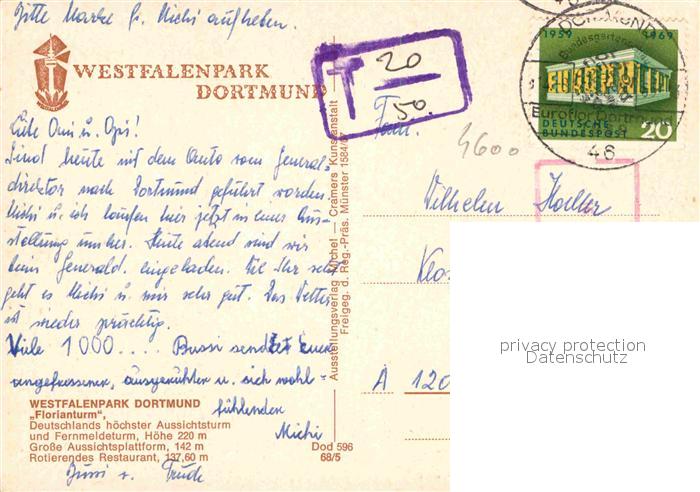 Bitte Marke f. Michi aufheben.
WESTFALENPARK
DORTMUND
Liebe Omi u. Opi!
Sind heute mit dem Auto vom General-
direktor nach Dortmund geführt worden.
Michi u. ich laufen hier jetzt in einer Aus-
stellung umher. Heute abend sind wir
beim Generald. eingeladen. Wie Ihr seht
geht es Michi u. mir sehr gut. Das Wetter
ist wieder prächtig.
Viele 1000.... Bussi sendet Euer
angefressener, ausgeruhter u. sich wohl-
fühlenden
Michi
Bussi v. Trude
WESTFALENPARK DORTMUND
„Florianturm“,
Deutschlands höchster Aussichtsturm
und Fernmeldeturm, Höhe 220 m
Große Aussichtsplattform, 142 m
Rotierendes Restaurant, 137,60 m
Dod 596
68/5
Ausstellungsverlag Michel — Cramers Kunstanstalt
Freigeg. d. Reg.-Präs. Münster 1584/67
T 20
50
Fam.
4600
Wilhelm
A 120
1959 1969
EUROPA CEPT
DEUTSCHE
BUNDESPOST 20
DORTMUND
Bundesgarten
Euroflor Dortmund
46
privacy protection
Datenschutz